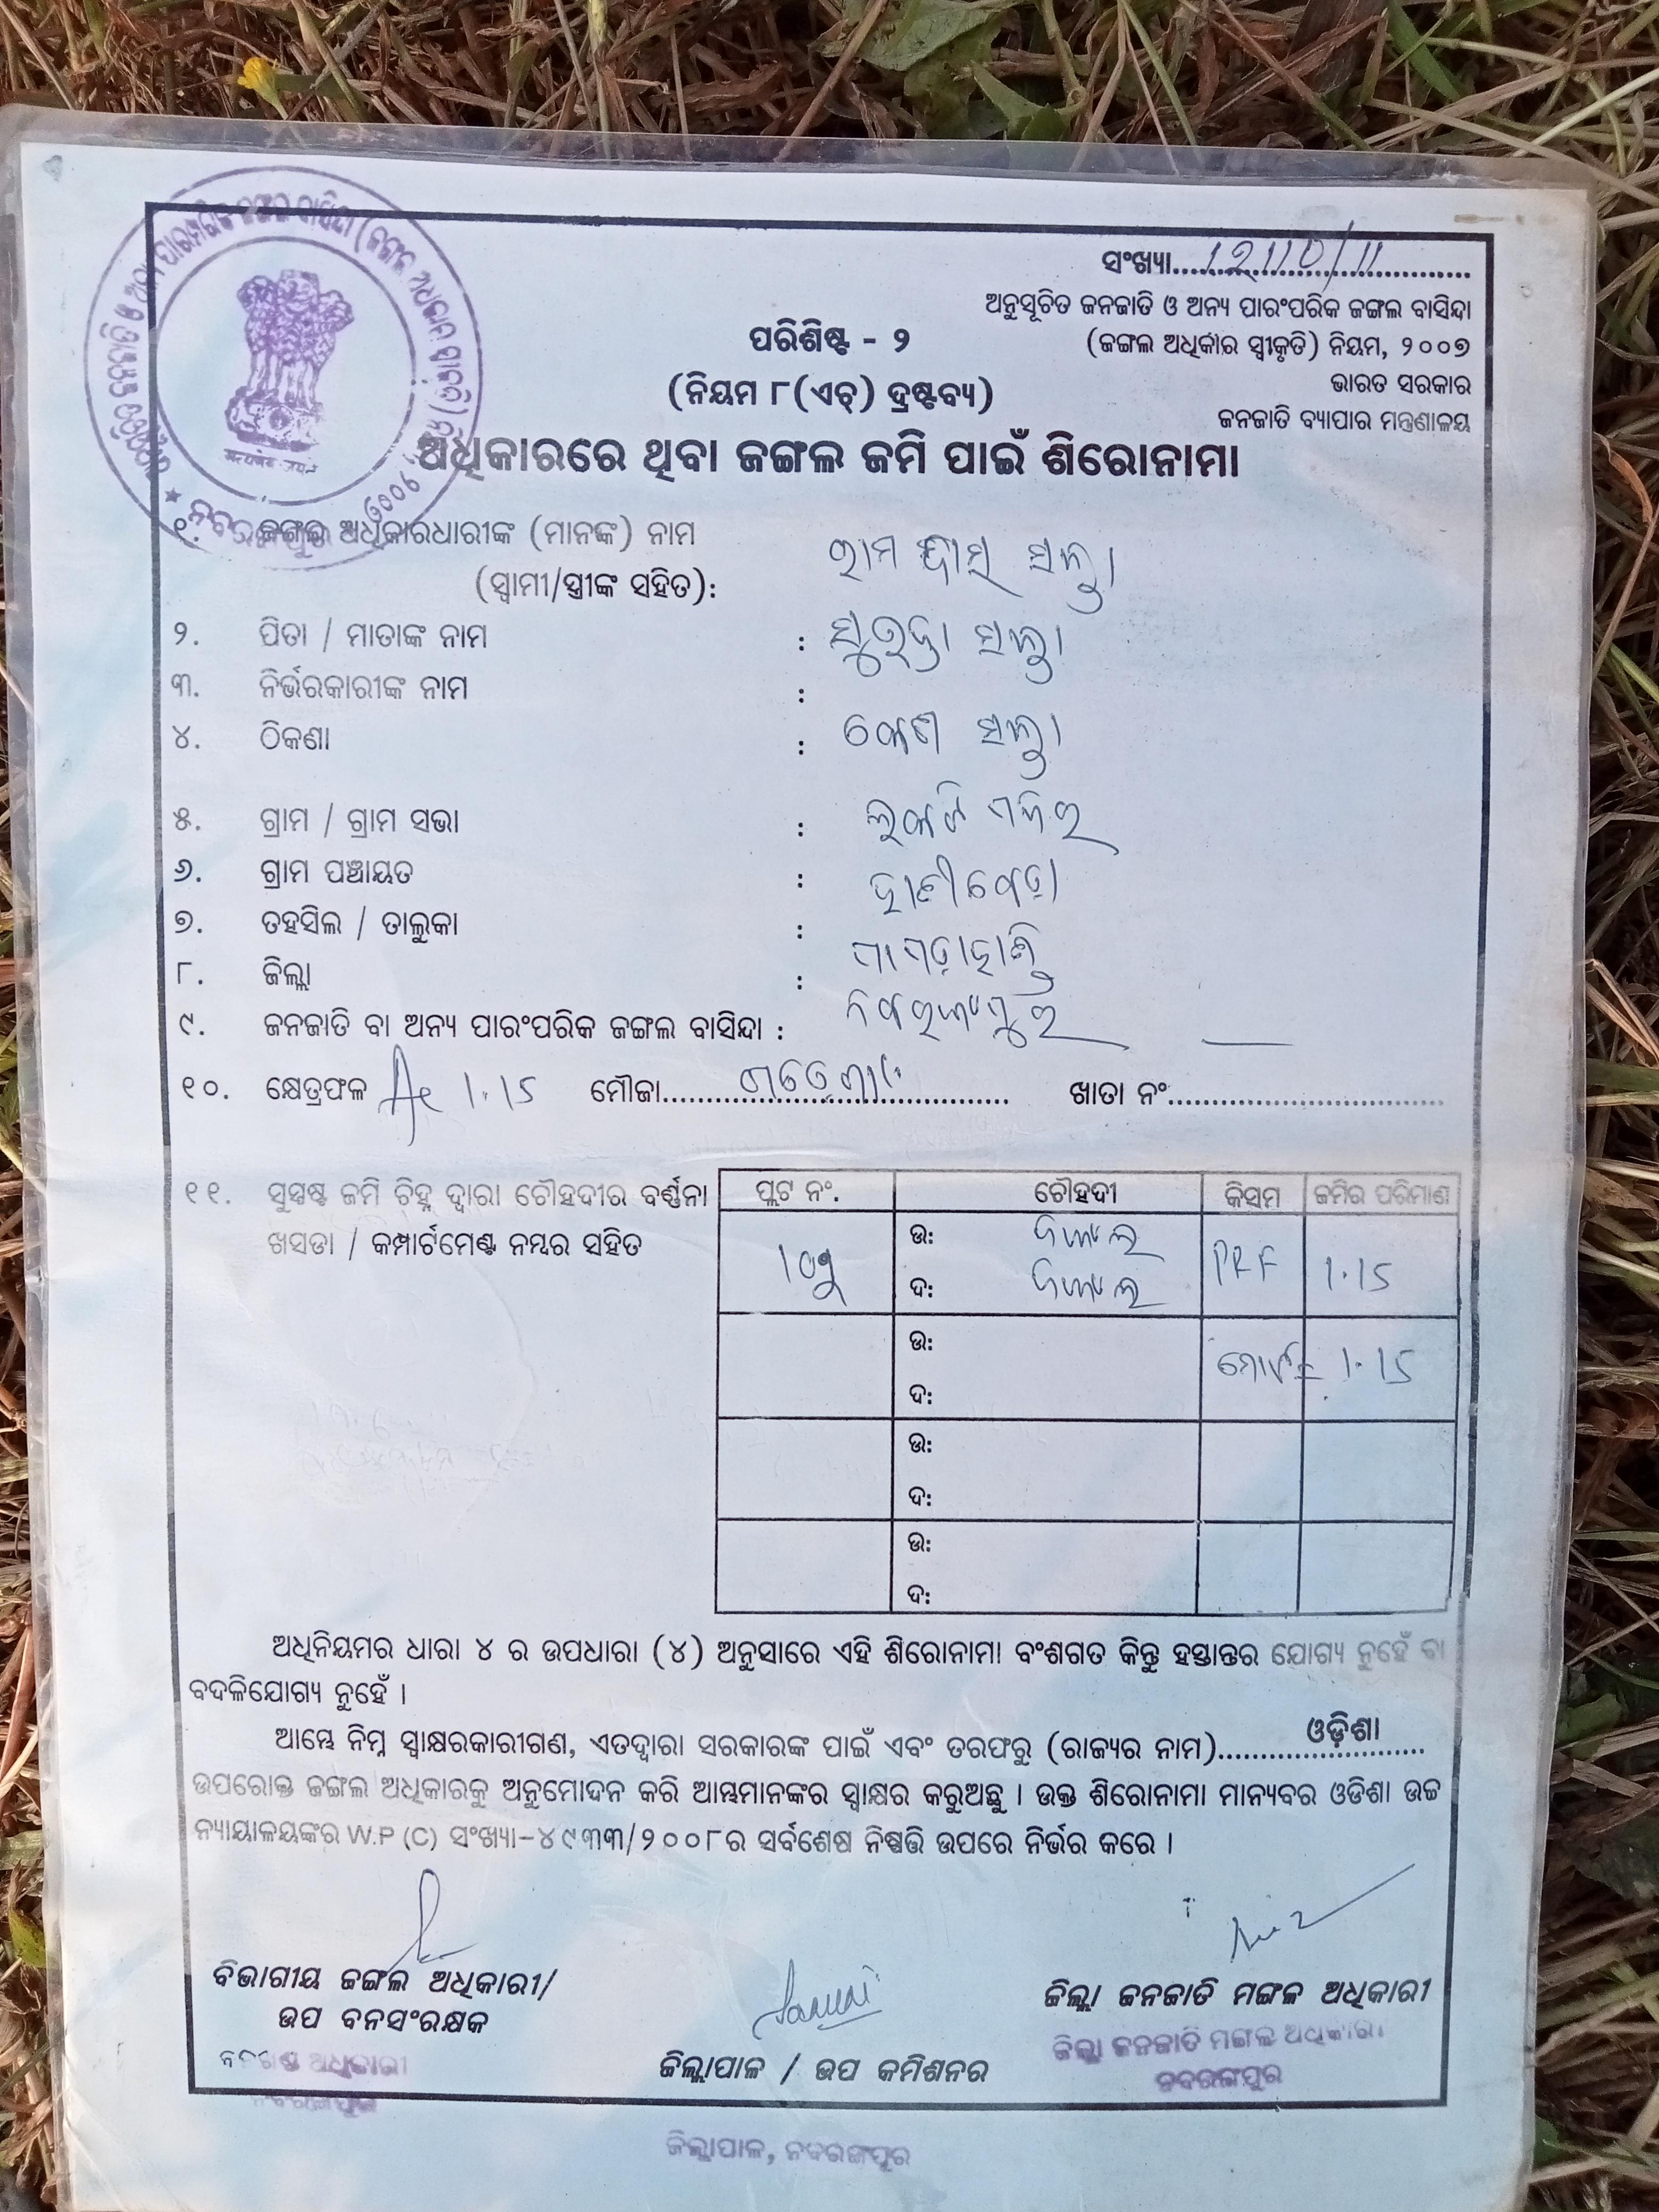 ସଂଖ୍ୟା.....12110/11.....
ଅନୁସୂଚିତ ଜନଜାତି ଓ ଅନ୍ୟ ପାରଂପରିକ ଜଙ୍ଗଲ ବାସିନ୍ଦା
(ଜଙ୍ଗଲ ଅଧିକାର ସ୍ୱୀକୃତି) ନିୟମ, ୨୦୦୭
ଭାରତ ସରକାର
ଜନଜାତି ବ୍ୟାପାର ମନ୍ତ୍ରଣାଳୟ
ପରିଶିଷ୍ଟ - ୨
(ନିୟମ ୮(ଏଚ୍) ଦ୍ରଷ୍ଟବ୍ୟ)
ଅଧିକାରରେ ଥିବା ଜଙ୍ଗଲ ଜମି ପାଇଁ ଶିରୋନାମା
୧. ଜଙ୍ଗଲ ଅଧିକାରଧାରୀଙ୍କ (ମାନଙ୍କ) ନାମ
(ସ୍ୱାମୀ/ସ୍ତ୍ରୀଙ୍କ ସହିତ):
୨. ପିତା / ମାତାଙ୍କ ନାମ :
୩. ନିର୍ଭରକାରୀଙ୍କ ନାମ :
୪. ଠିକଣା :
୫. ଗ୍ରାମ / ଗ୍ରାମ ସଭା :
୬. ଗ୍ରାମ ପଞ୍ଚାୟତ :
୭. ତହସିଲ / ତାଲୁକା :
୮. ଜିଲ୍ଲା : ନବରଙ୍ଗପୁର
୯. ଜନଜାତି ବା ଅନ୍ୟ ପାରଂପରିକ ଜଙ୍ଗଲ ବାସିନ୍ଦା : —
୧୦. କ୍ଷେତ୍ରଫଳ Ac 1.15 ମୌଜା.......... ଖାତା ନଂ..........
୧୧. ସୁସ୍ପଷ୍ଟ ଜମି ଚିହ୍ନ ଦ୍ୱାରା ଚୌହଦୀର ବର୍ଣ୍ଣନା
ଖସଡା / କମ୍ପାର୍ଟମେଣ୍ଟ ନମ୍ବର ସହିତ
ପ୍ଲଟ ନଂ. ଚୌହଦୀ କିସମ ଜମିର ପରିମାଣ
ଉ: ଜଙ୍ଗଲ PRF 1.15
ଦ: ଜଙ୍ଗଲ
ଉ: ମୋଟ 1.15
ଦ:
ଉ:
ଦ:
ଉ:
ଦ:
ଅଧିନିୟମର ଧାରା ୪ ର ଉପଧାରା (୪) ଅନୁସାରେ ଏହି ଶିରୋନାମା ବଂଶଗତ କିନ୍ତୁ ହସ୍ତାନ୍ତର ଯୋଗ୍ୟ ନୁହେଁ ବା
ବଦଳିଯୋଗ୍ୟ ନୁହେଁ ।
ଆମ୍ଭେ ନିମ୍ନ ସ୍ୱାକ୍ଷରକାରୀଗଣ, ଏତଦ୍ୱାରା ସରକାରଙ୍କ ପାଇଁ ଏବଂ ତରଫରୁ (ରାଜ୍ୟର ନାମ).....ଓଡ଼ିଶା.....
ଉପରୋକ୍ତ ଜଙ୍ଗଲ ଅଧିକାରକୁ ଅନୁମୋଦନ କରି ଆମ୍ଭମାନଙ୍କର ସ୍ୱାକ୍ଷର କରୁଅଛୁ । ଉକ୍ତ ଶିରୋନାମା ମାନ୍ୟବର ଓଡିଶା ଉଚ୍ଚ
ନ୍ୟାୟାଳୟଙ୍କର W.P (C) ସଂଖ୍ୟା-୪୯୩୩/୨୦୦୮ର ସର୍ବଶେଷ ନିଷ୍ପତ୍ତି ଉପରେ ନିର୍ଭର କରେ ।
ବିଭାଗୀୟ ଜଙ୍ଗଲ ଅଧିକାରୀ/
ଉପ ବନସଂରକ୍ଷକ
ଜିଲ୍ଲାପାଳ / ଉପ କମିଶନର
ଜିଲ୍ଲା ଜନଜାତି ମଙ୍ଗଳ ଅଧିକାରୀ
ଜିଲ୍ଲା ଜନଜାତି ମଙ୍ଗଳ ଅଧିକାରୀ
ନବରଙ୍ଗପୁର
ଜିଲ୍ଲାପାଳ, ନବରଙ୍ଗପୁର